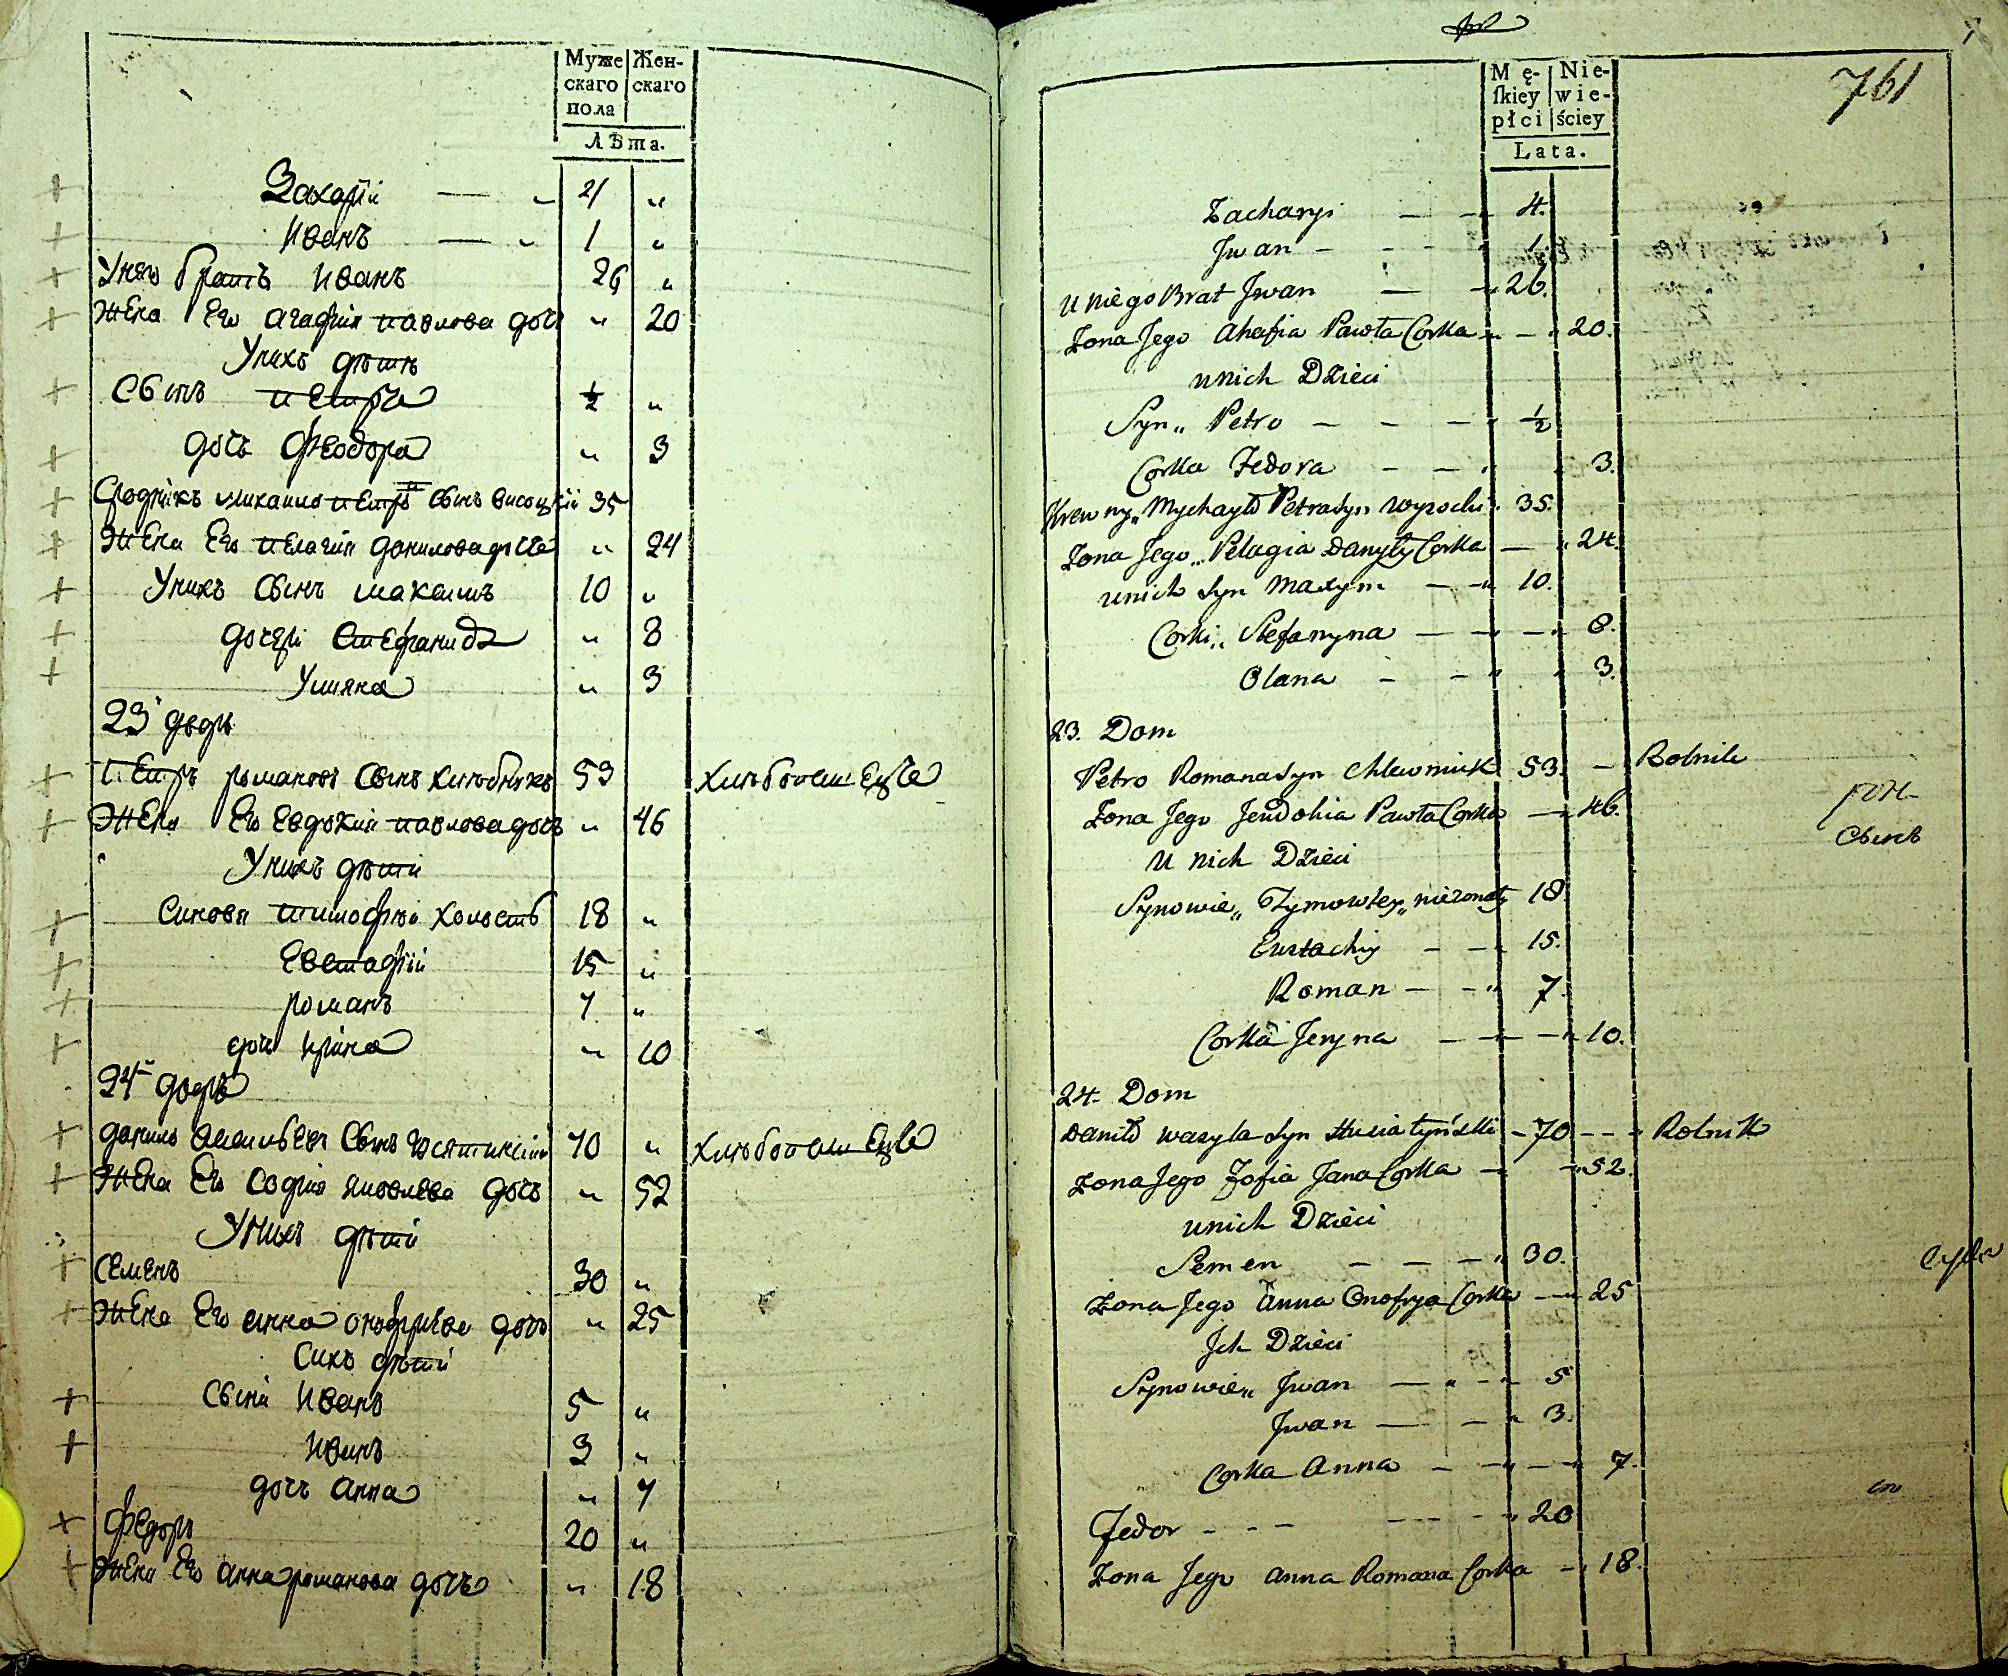 Муже
скаго
пола
Жен-
скаго
Лѣта.
Захарiй — „ 21 „
Иванъ — „ 1 „
Унего братъ Иванъ 26 „
Жена Его агафия павлова дочь „ 20
Унихъ дѣти
Сынъ петръ ½ „
дочь Феодора „ 3
Сродникъ михаило петровъ Сынъ високий 35
Жена Его пелагия данилова дочь „ 24
Унихъ Сынъ максимъ 10 „
дочери Стефанида „ 8
Уляна „ 3
23 дворъ
Петръ романовъ Сынъ хлѣбникъ 53 хлѣбопашецъ
Жена Его Евдокия павлова дочь „ 46
Унихъ дѣти
Синовя тимофѣй холостъ 18 „
Евстафий 15 „
романъ 7 „
дочь Ирина „ 10
24 дворъ
данило васильевъ Сынъ 70 „ хлѣбопашецъ
Жена Его София яковлева дочь „ 52
Унихъ дѣти
Семенъ 30 „
Жена Его анна онофриева дочь „ 25
Сихъ дѣти
Сыни Иванъ 5 „
Иванъ 3 „
дочь анна „ 7
Федоръ 20 „
Жена Его анна романова дочь „ 18
761
Mę-
ſkiey
płci
Nie-
wie-
ściey
Lata.
Zacharyi — — 4.
Jwan — 1.
u niego Brat Jwan — 26.
Zona Jego Ahafia Pawła Corka — 20.
u nich Dzieci
Syn „ Petro — — — ½
Corka Fedora — — 3.
Krewny „ Mychayło Petra Syn Wysocki 35.
Zona Jego „ Pelagia Danyły Corka — 24.
u nich Syn Maxym — 10.
Corki „ Stefanyna — — 8.
Olana — — 3.
23. Dom
Petro Romana Syn Chlewniuk 53. — Rolnik
Zona Jego Jewdohia Pawła Corka — 46.
U nich Dzieci
Synowie „ Tymowtey „ niezonaty 18
Eustachiy — — 15.
Roman — — 7.
Corka Jeryna — — — 10.
Сынъ
24. Dom
Daniło Wasyla Syn Husiatyński — 70 — — Rolnik
Zona Jego Zofia Jana Corka — 52.
u nich Dzieci
Semen — — — 30.
Zona Jego Anna Onofrya Corka — 25
Jch Dzieci
Synowie „ Jwan — — 5
Jwan — — 3.
Corka Anna — — — 7.
Fedor — — — 20
Zona Jego Anna Romana Corka — 18.